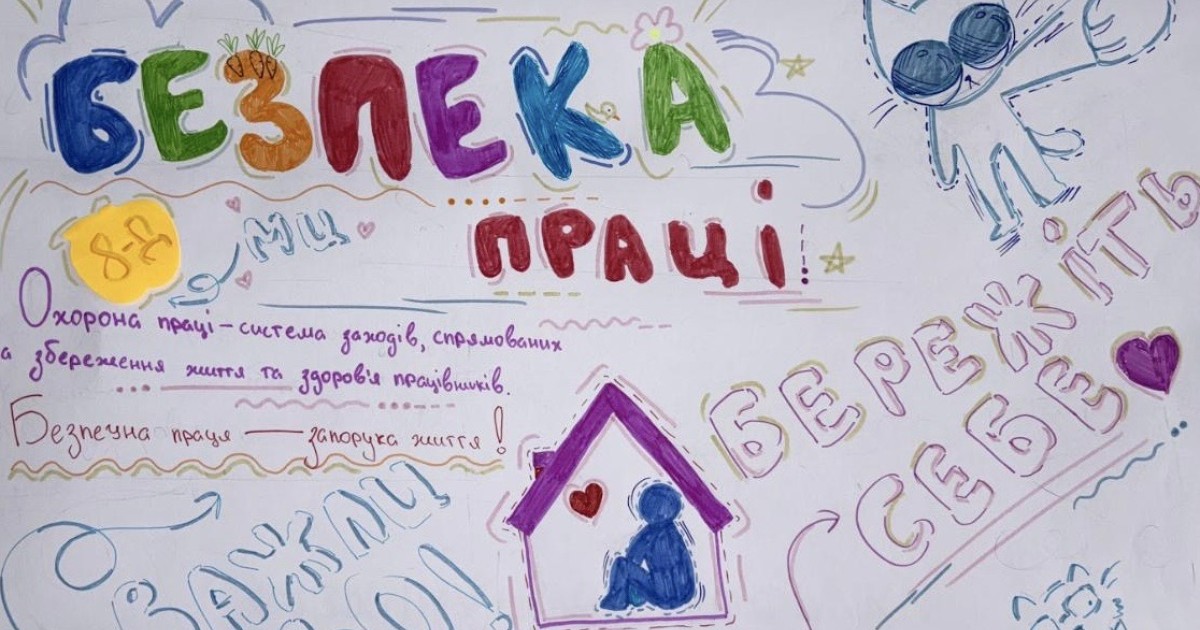 БЕЗПЕКА
ПРАЦІ
8-Д
МИ
Охорона праці – система заходів, спрямованих
а збереження життя та здоров'я працівників.
Безпечна праця — запорука життя!
БЕРЕЖІТЬ
СЕБЕ
ВАЖЛИ
О!